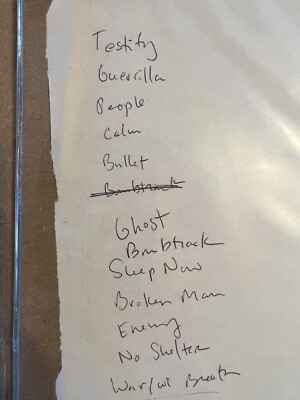 Testify
Guerilla
People
Calm
Bullet
Bombtrack
Ghost
Bombtrack
Sleep Now
Broken Man
Enemy
No Shelter
War/wi Breath